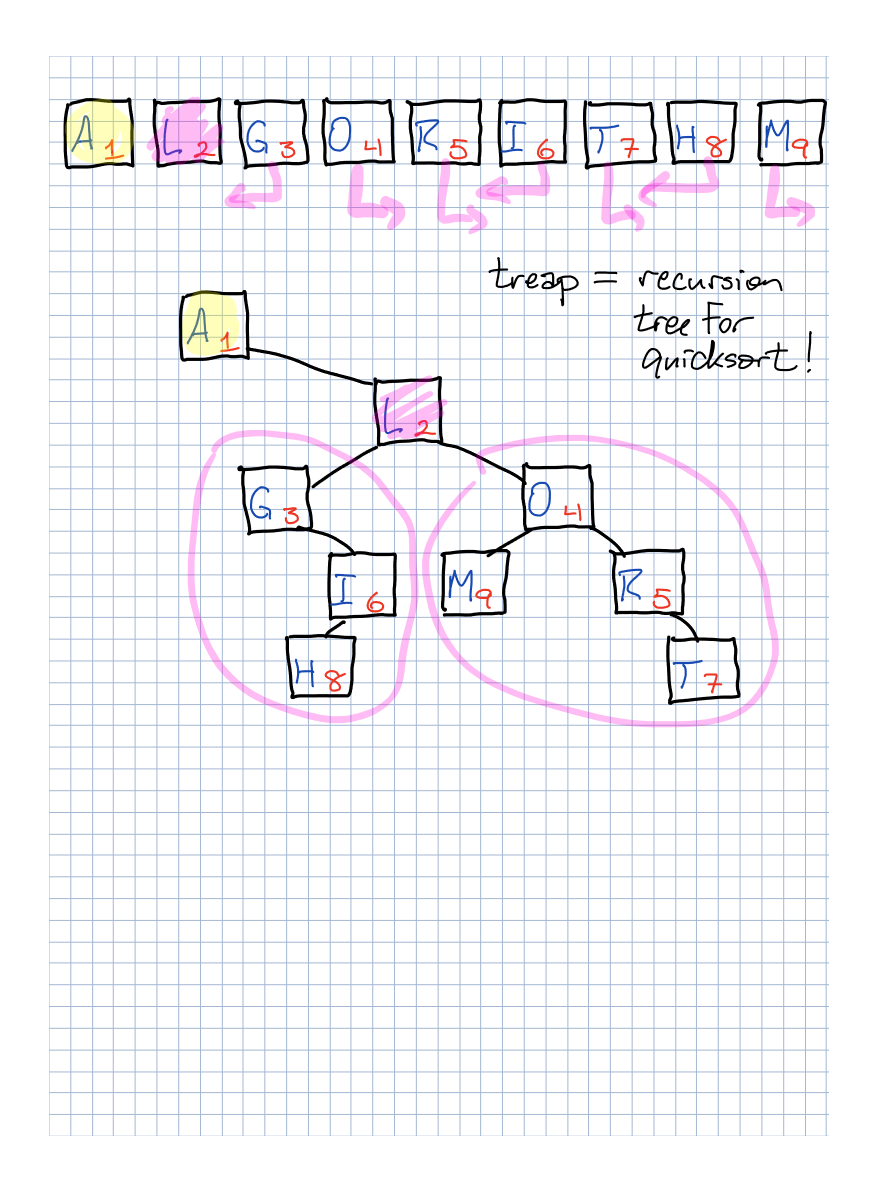 A 1 L 2 G 3 O 4 R 5 I 6 T 7 H 8 M 9
treap = recursion
tree for
quicksort!
A 1
L 2
G 3 O 4
I 6 M 9 R 5
H 8 T 7